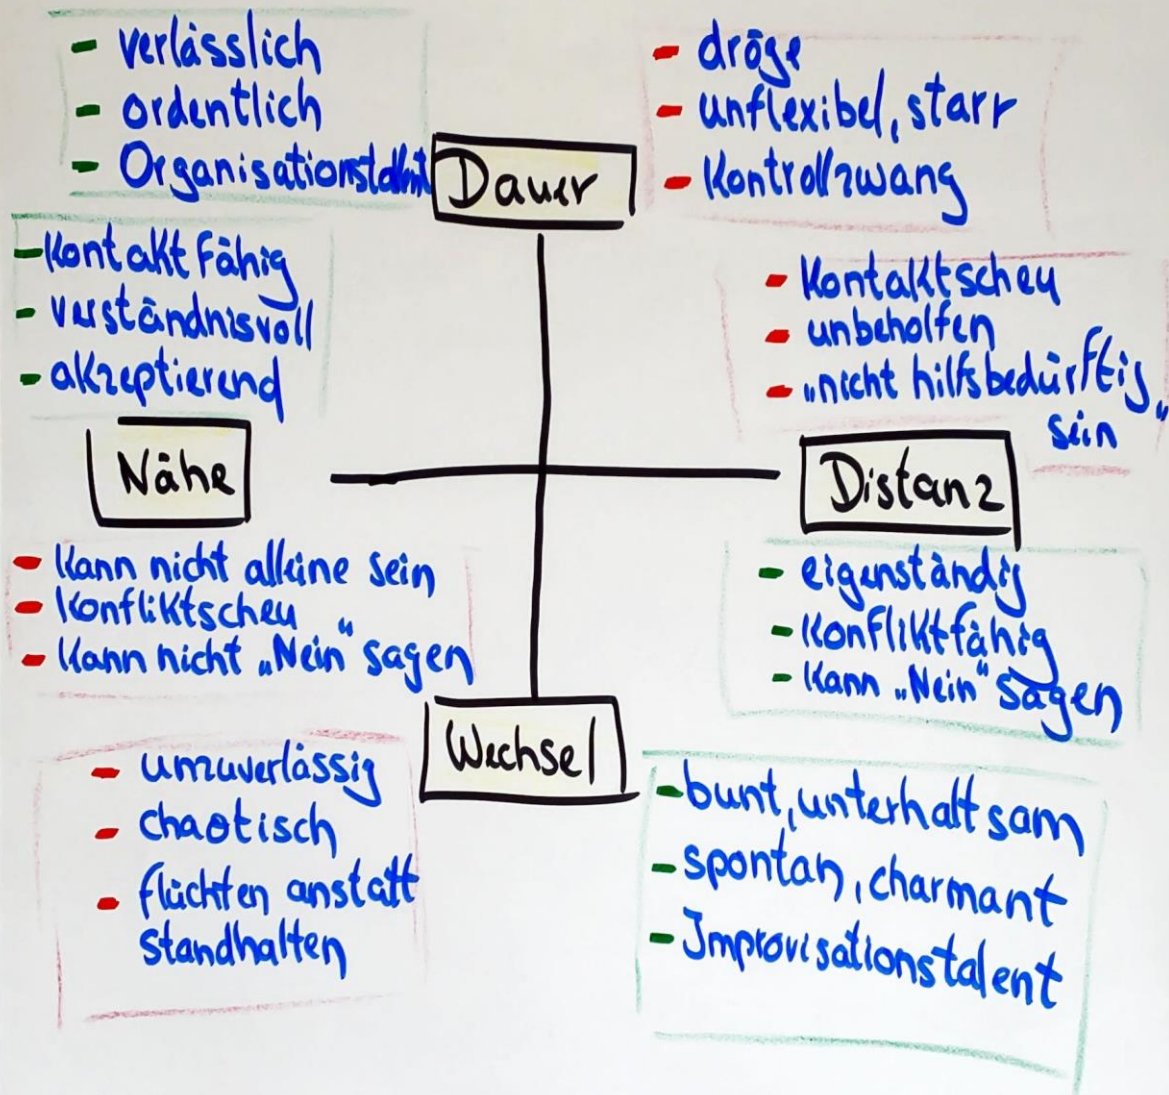 - verlässlich
- ordentlich
- Organisationstalent
Dauer
- dröge
- unflexibel, starr
- Kontrollzwang
- Kontaktfähig
- verständnisvoll
- akzeptierend
Nähe
- Kontaktscheu
- unbeholfen
- „nicht hilfsbedürftig“
sein
Distanz
- Kann nicht alleine sein
- Konfliktscheu
- Kann nicht „Nein“ sagen
- eigenständig
- Konfliktfähig
- Kann „Nein“ sagen
Wechsel
- unzuverlässig
- chaotisch
- flüchten anstatt
standhalten
- bunt, unterhaltsam
- spontan, charmant
- Improvisationstalent